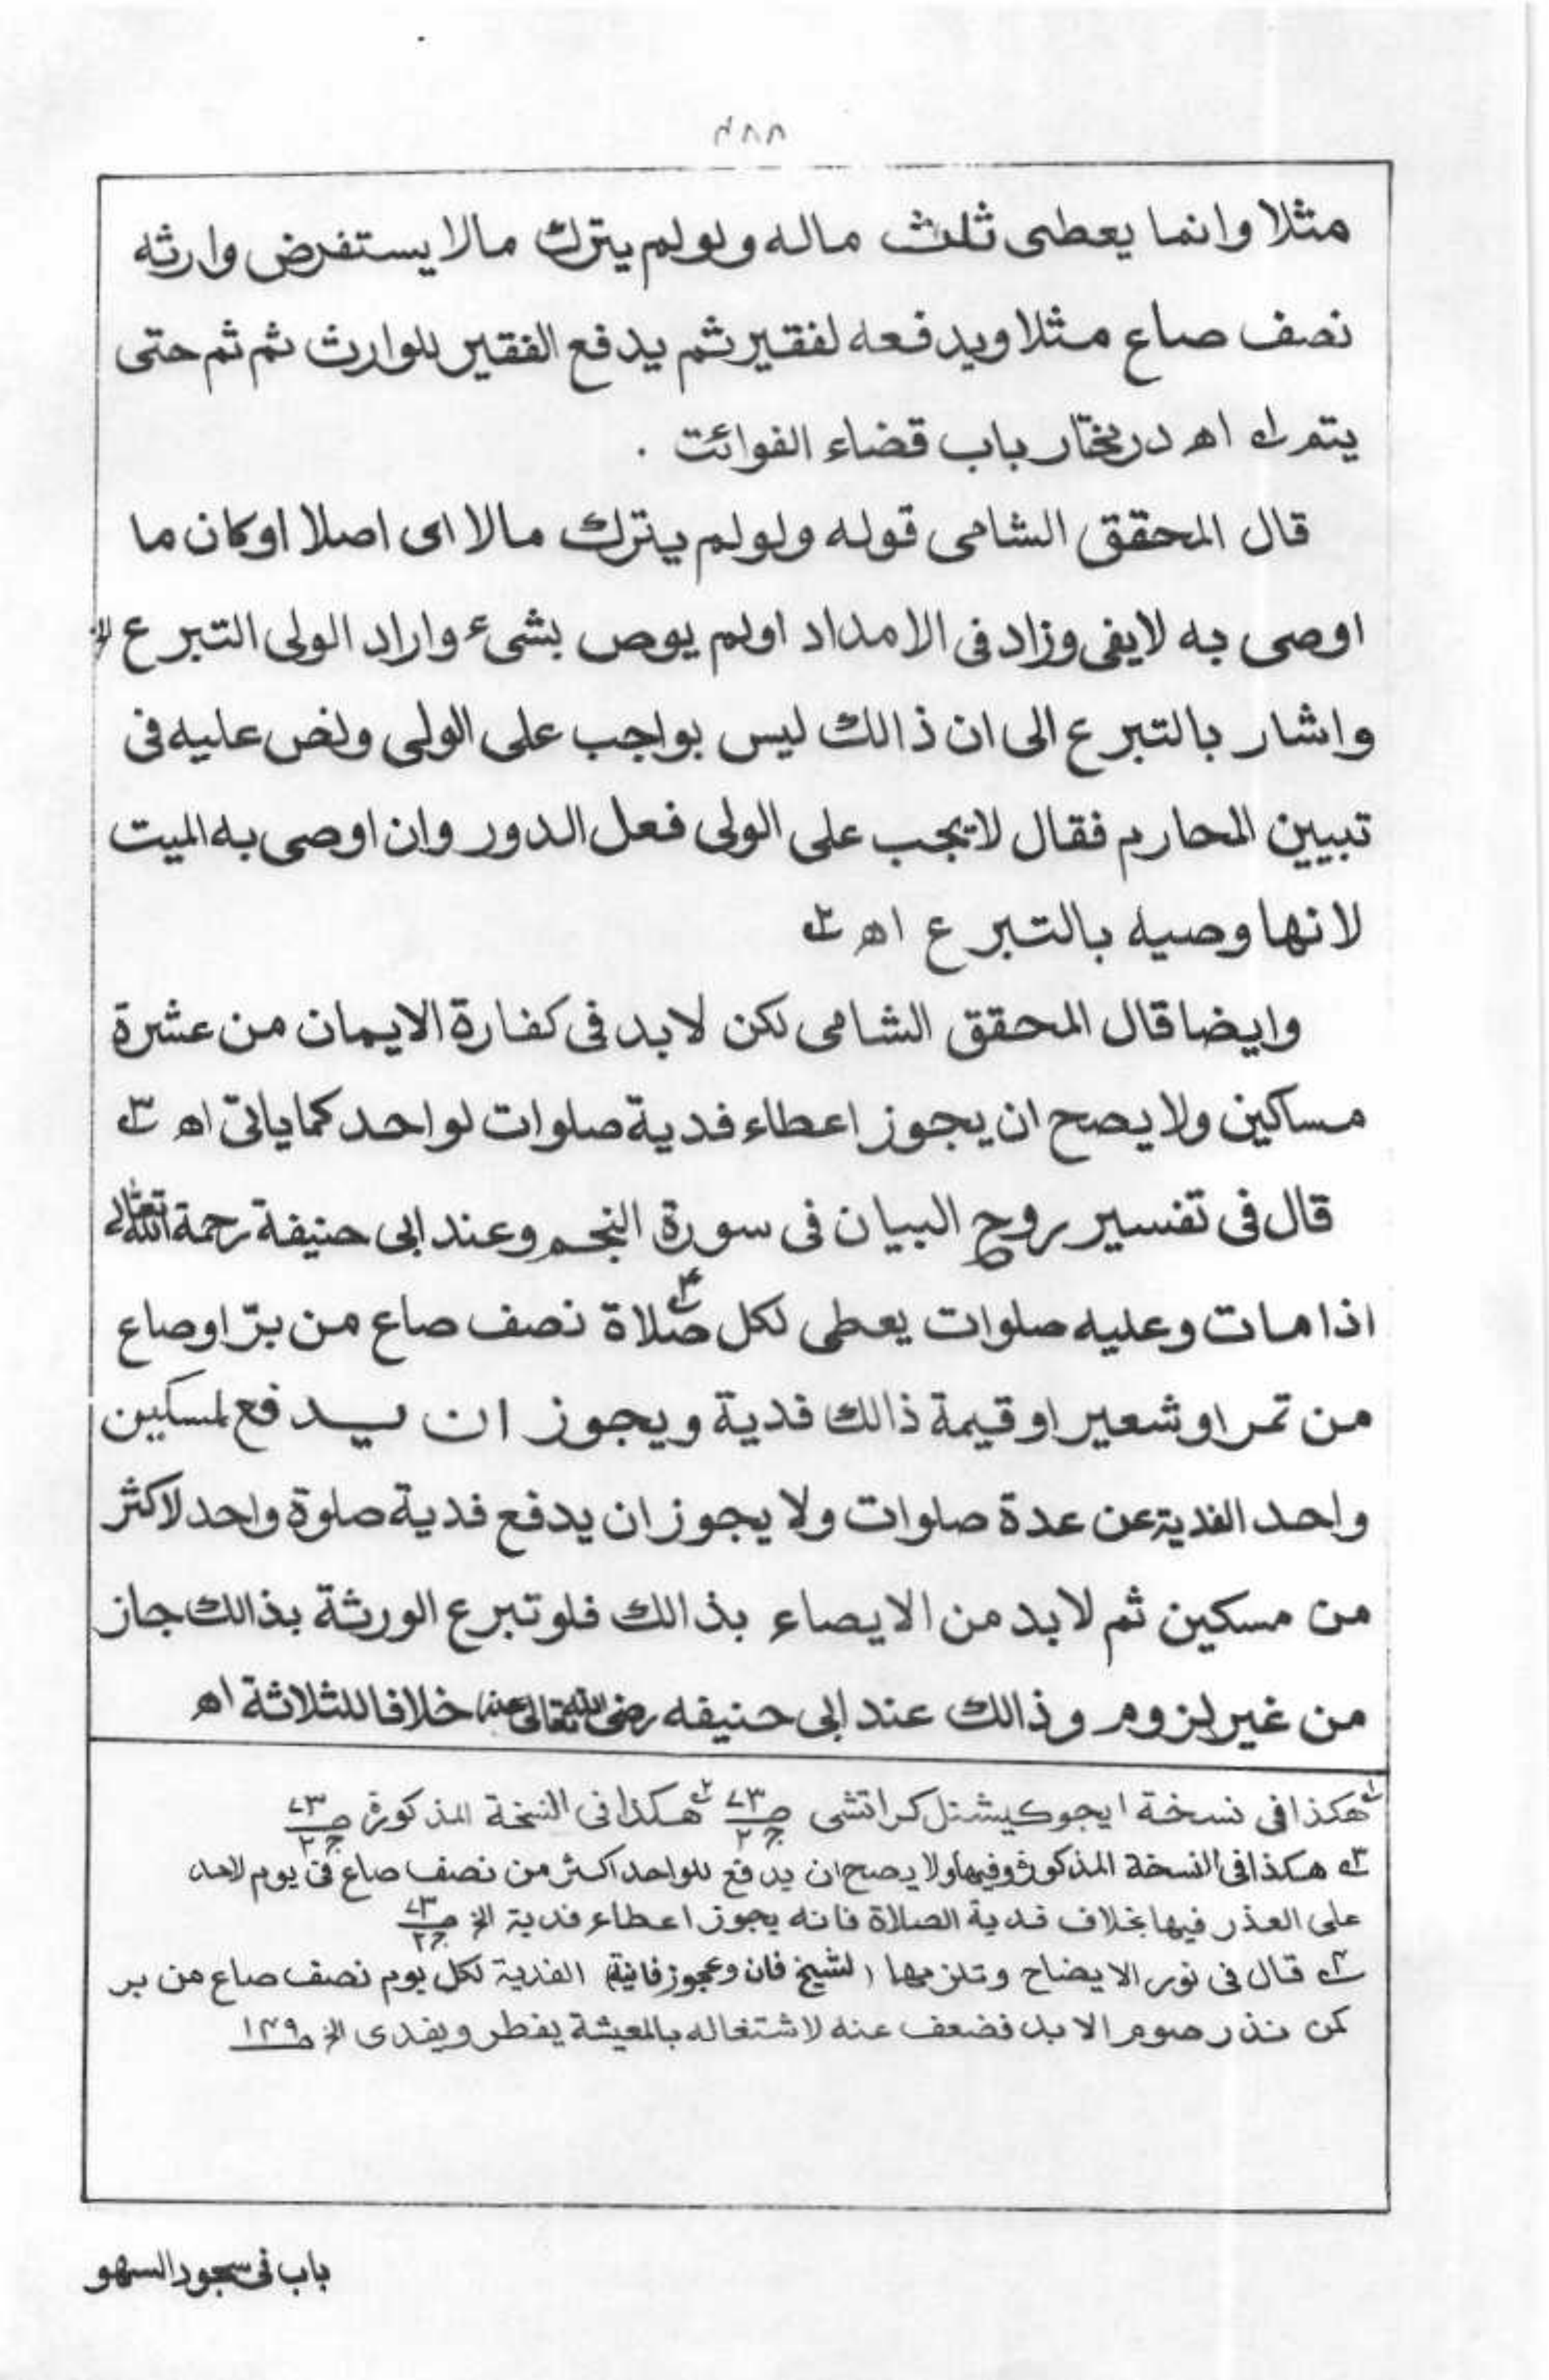 ۴۸۸
مثلا وانما يعطى ثلث ماله ولولم يترك مالا يستفرض وارثه
نصف صاع مثلا ويدفعه لفقير ثم يدفع الفقير للوارث ثم ثم حتى
يتم ۱ اھ درمختار باب قضاء الفوائت .
قال المحقق الشامى قوله ولولم يترك مالا اى اصلا اوكان ما
اوصى به لايفى وزاد فى الامداد اولم يوص بشىء واراد الولى التبرع الخ
واشار بالتبرع الى ان ذالك ليس بواجب على الولى ونص عليه فى
تبيين المحارم فقال لايجب على الولى فعل الدور وان اوصى به الميت
لانها وصيه بالتبرع اھ ۲
وايضا قال المحقق الشامى لكن لابد فى كفارة الايمان من عشرة
مساكين ولا يصح ان يجوز اعطاء فدية صلوات لواحد كما ياتى اھ ۳
قال فى تفسير روح البيان فى سورة النجم وعند ابى حنيفة رحمة الله تعالى
اذا مات وعليه صلوات يعطى لكل صلاة ۴ نصف صاع من برّ اوصاع
من تمر اوشعير اوقيمة ذالك فدية ويجوز ان يدفع لمسكين
واحد الفدية عن عدة صلوات ولا يجوز ان يدفع فدية صلوة واحد لاكثر
من مسكين ثم لابد من الايصاء بذالك فلوتبرع الورثة بذالك جاز
من غير لزوم وذالك عند ابى حنيفه رضى الله تعالى عنه خلافا للثلاثة اھ
۱ هكذا فى نسخة ايجوكيشنل كراتشى ص ۷۳ ج ۲ ۲ هكذا فى النسخة المذكورة ص ۷۳ ج ۲
۳ هكذا فى النسخة المذكورة وفيها ولا يصح ان يدفع للواحد اكثر من نصف صاع فى يوم لاحد
على العذر فيها بخلاف فدية الصلاة فانه يجوز اعطاء فدية الخ ص ۷۳ ج ۲
۴ قال فى نور الايضاح وتلزمها (لشيخ فان وعجوز فانية) الفدية لكل يوم نصف صاع من بر
كمن نذر صوم الابد فضعف عنه لاشتغاله بالمعيشة يفطر ويفدى الخ ص ۱۴۹
باب فى سجود السهو